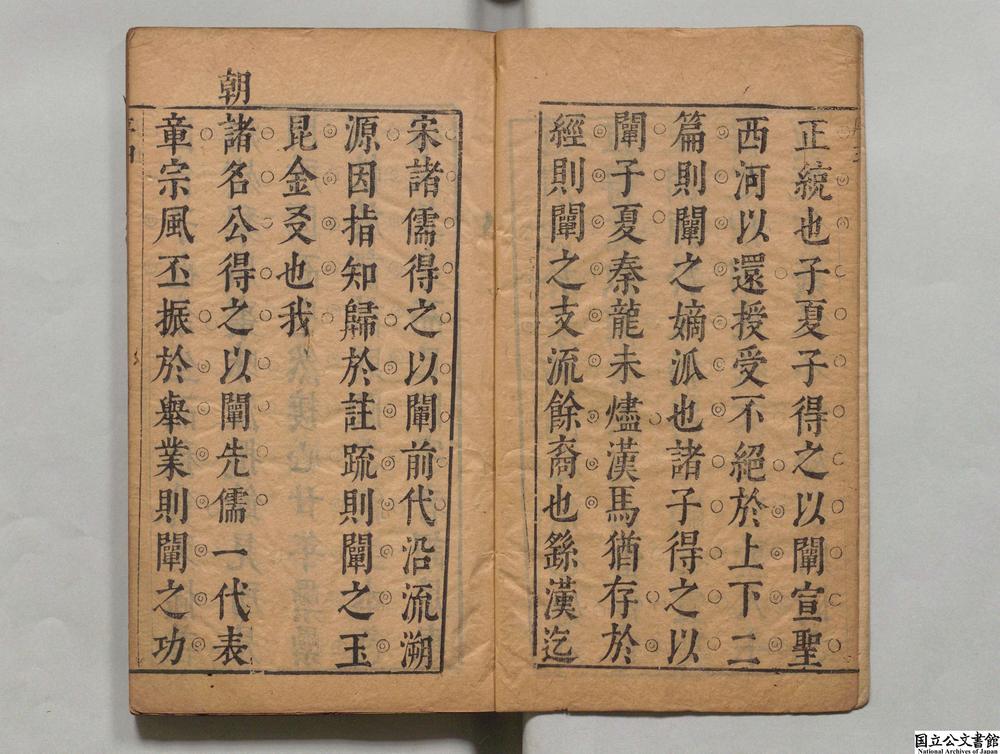 正統也子夏子得之以闡宣聖
西河以還授受不絕於上下二
篇則闡之嫡派也諸子得之以
闡子夏秦龍未燼漢馬猶存於
經則闡之支流餘裔也繇漢迄
宋諸儒得之以闡前代沿流溯
源因指知歸於註疏則闡之玉
昆金友也我
朝諸名公得之以闡先儒一代表
章宗風丕振於舉業則闡之功
国立公文書館
National Archives of Japan